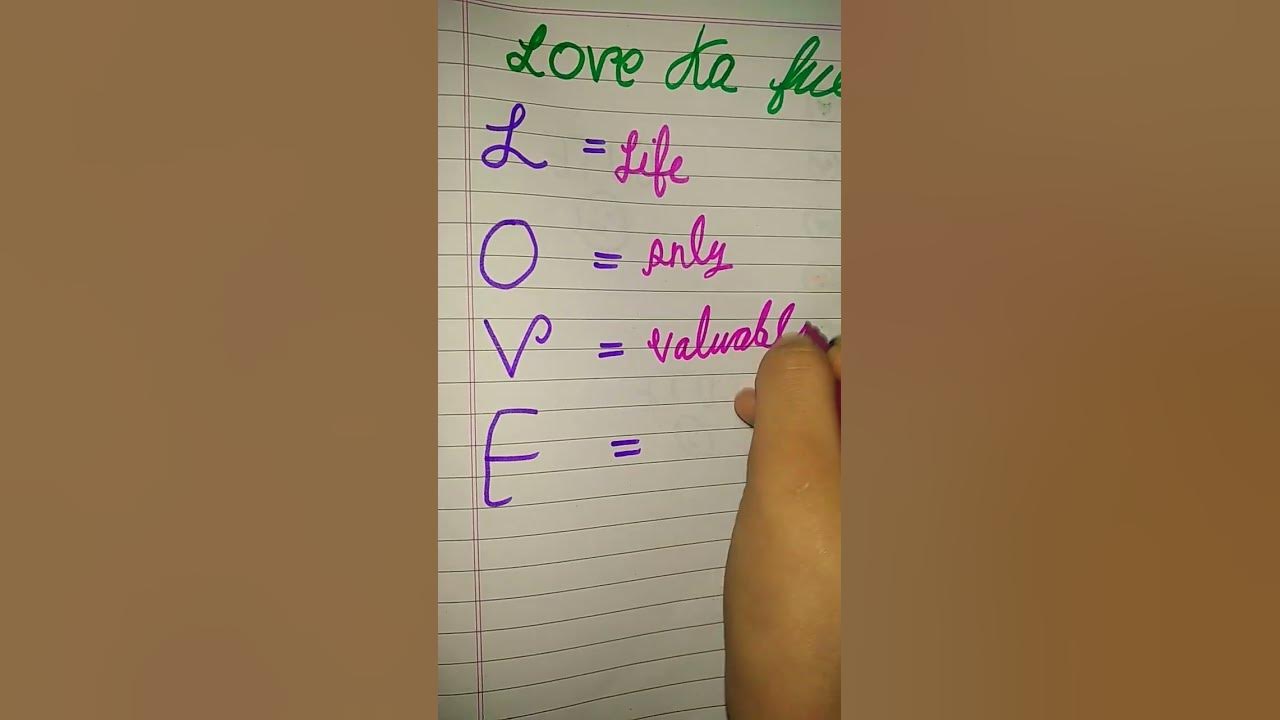 Love Ka
L = Life
O = only
V = valuable
E =